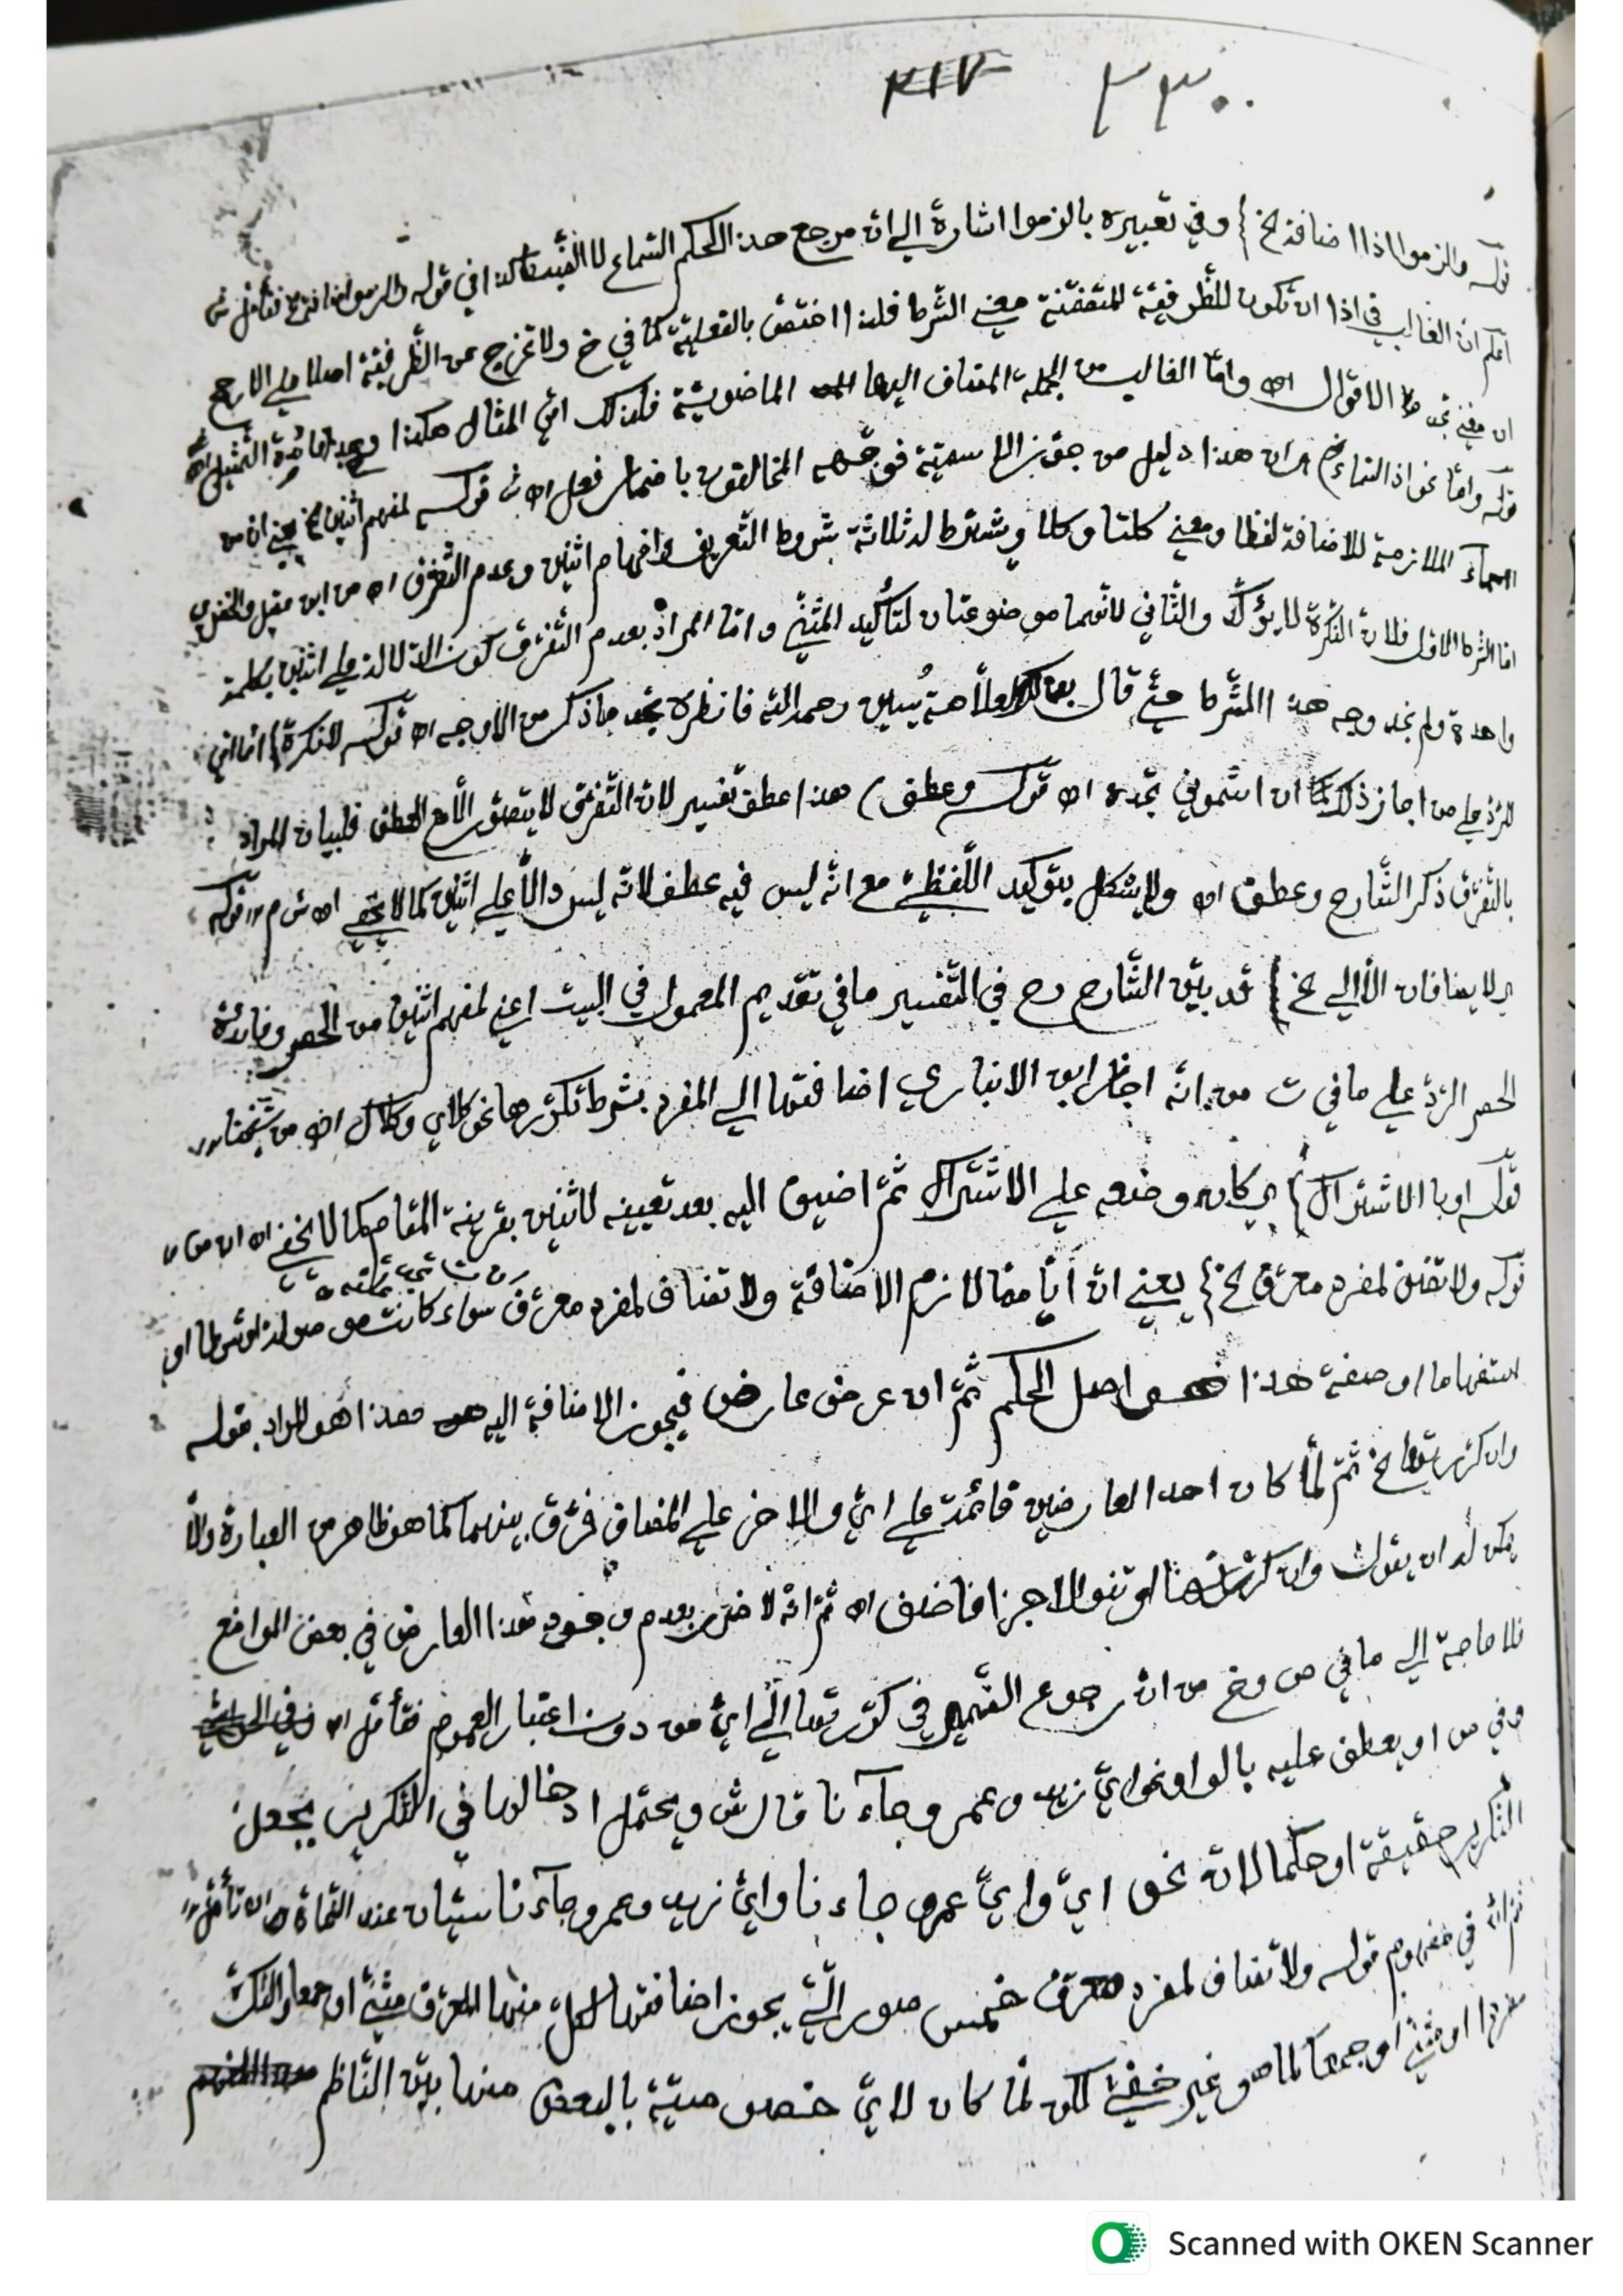 ٣١٧ ٣٣٠
قوله والزموا اذا اضافة الخ} وفي تعبيره بالزموا اشارة الي ان مرجع هذا الحكم السماع لا القياس كذا في قوله والزموا
اعلم ان الغالب في اذا ان تكون للظرفية المتضمنة معني الشرط فلذا اختصت بالفعلية كما في خ ولا تخرج عن الظرفية اصلا علي الارجح
الاقوال اه واما الغالب من الجملة المضاف اليها الماضوية فلذلك اتي المثال هكذا
قوله واما نحو اذا السماء خ} اي ان هذا دليل من جوز الاسمية فوجهه المخالفون باضمار فعل اه ش قوله لمفهم اثنين خ} يعني ان من
الاسماء الملازمة للاضافة لفظا ومعني كلتا وكلا ويشترط له ثلاثة شروط التعريف وافهام اثنين وعدم التفرق اه من ابن عقيل والخضري
اما الشرط الاول فلان النكرة لا يؤكد والثاني لانهما موضوعتان لتأكيد المثني واما المراد بعدم التفرق كون الدلالة علي اثنين بكلمة
واحدة ولم نجد وجه هذا الشرط حتي قال رحمه الله فانظره تجد ما ذكر من الاوجه اه قوله لا نكرة} اما اتي
للرد علي من اجاز ذلك كما ان اشموني تجده اه قوله وعطف} هذا عطف تفسير لان التفرق لا يتصور الا مع العطف فلبيان المراد
بالتفرق ذكر الشارح وعطف اه ولا يشكل بتوكيد اللفظي مع انه ليس فيه عطف لانه ليس دالا علي اثنين كما لا يخفي اه ش م رر قوله
اي لا يضافان الا الي خ} قد بين الشارح رح في التفسير ما في تقديم المعمول في البيت اعني لمفهم اثنين من الحصر وفائدة
الحصر الرد علي ما في ت من انه اجاز ابن الانباري اضافتها الي المفرد بشرط تكررها نحو كلاي وكلاك اه من شيخنا رر
قوله او بالاشتراك} اي كان وضعه علي الاشتراك ثم اضيف اليه بعد تعيينه لاثنين بقرينة المقام كما لا يخفي اه
قوله ولا تضف لمفرد معرف خ} يعني ان ايا مما لازم الاضافة ولا تضاف لمفرد معرف سواء كانت موصولة او شرطا او
استفهاما او صفة هذا هو اصل الحكم ثم ان عرض عارض فيجوز الاضافة اليه وهذا هو المراد بقوله
وان كررتها خ ثم لما كان احد العارضين قائمة علي اي والاخر علي المضاف فرق بينهما كما هو ظاهر من العبارة والا
يمكن له ان يقول وان كررتها او تنو الاجزا فاضف اه ثم انه لا ضرر بعدم وجود هذا العارض في بعض المواضع
فلا حاجة الي ما في ص وخ من ان رجوع الضمير في كررتها الي اي من دون اعتبار العموم فتأمل اه
وفي ص او يعطف عليه بالواو نحو اي زيد وعمرو جاآنا قال ش ويحتمل ادخالها في التكرير بجعل
التكرير حقيقة او حكما لان نحو اي واي عمرو جاءنا واي زيد وعمرو جاءنا سيان عند النحاة اه تأمل رر
ثم انه في مفهوم قوله ولا تضاف لمفرد معرف خمس صور التي يجوز اضافتها لكل منها المعرف مثني او جمعا والنكرة
مفردا او مثني او جمعا كما هو غير خفي لكن لما كان لاي خصوصية بالبعض منها بين الناظم
Scanned with OKEN Scanner